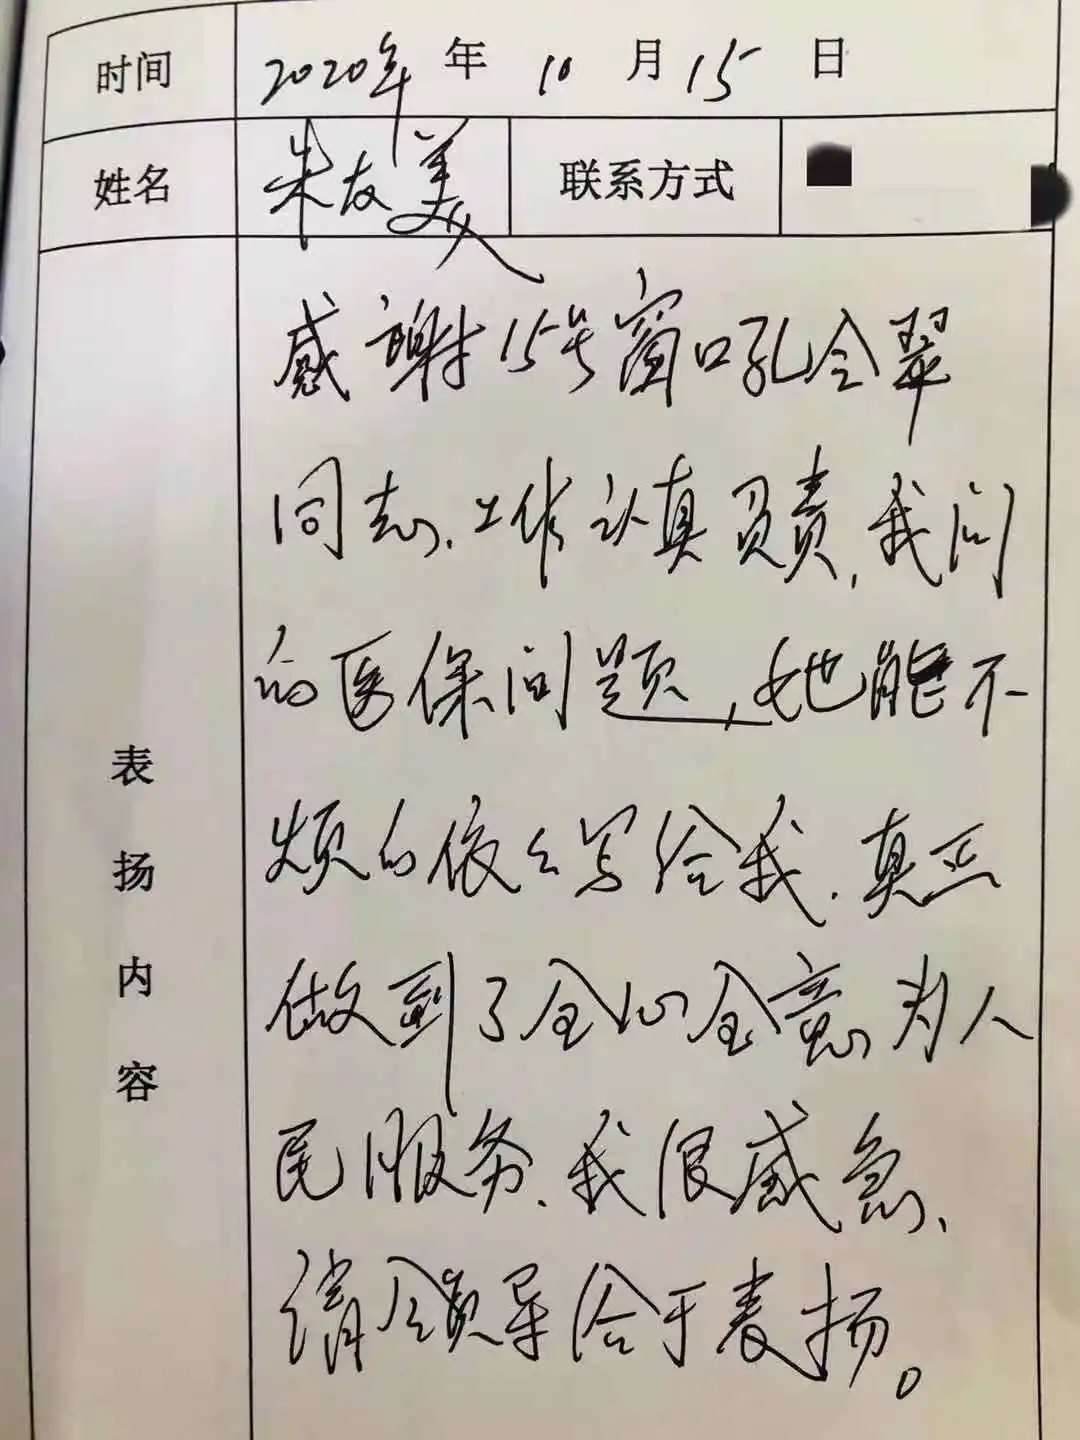 时间 2020年 年 10 月 15 日
姓名 朱友美 联系方式
表扬内容
感谢15号窗口孔令翠
同志、工作认真负责,我问
的医保问题,她能不
烦的依写给我.真正
做到了全心全意为人
民服务、我很感急、
请领导给于表扬。